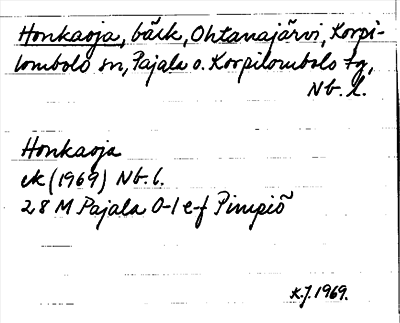 Honkaoja, bäck, Ohtanajärvi, Korpi-
lombolo sn, Pajala o. Korpilombolo tg,
Nb. l.
Honkaoja
ek (1969) Nb. l.
28 M Pajala 0-1 e-f Pimpiö
K.J. 1969.